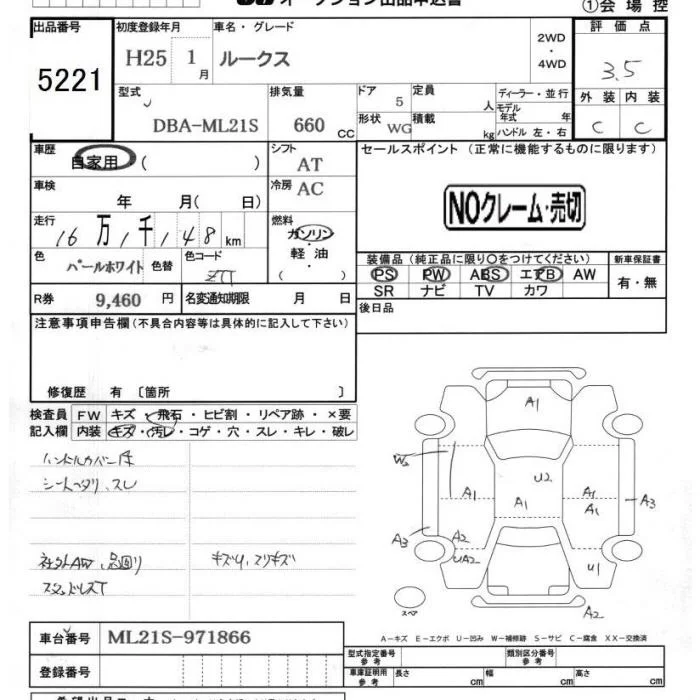 オークション出品申込書
①会場控
出品番号 初度登録年月 車名・グレード 評価点
5221 H25 1月 ルークス 2WD・4WD 3.5
型式 排気量 ドア 定員 ディーラー・並行 外装 内装
DBA-ML21S 660cc 5 人 モデル年式 年 C C
形状 積載
WG kg ハンドル 左・右
車歴 シフト セールスポイント(正常に機能するものに限ります)
自家用( ) AT
車検 冷房 NOクレーム・売切
年 月( 日) AC
走行 燃料
16万1千148km ガソリン・軽油・( )
色 色コード 装備品(純正品に限り○をつけてください) 新車保証書
パールホワイト 色替 ZJJ PS PW ABS エアB AW 有・無
R券 9,460円 名変通知期限 月 日 SR ナビ TV カワ
注意事項申告欄(不具合内容等は具体的に記入して下さい) 後日品
修復歴 有〔箇所 〕
検査員 FW キズ・飛石・ヒビ割・リペア跡・×要
記入欄 内装 キズ・汚レ・コゲ・穴・スレ・キレ・破レ
ハンドルカバー
シートヘタリ、スレ
社外AW キズU、スリキズ
スタッドレスT
A1
W2
U2
A1 A1 A1 A3
A3 A2
UA2 U1
スペア A2
A-キズ E-エクボ U-凹み W-補修跡 S-サビ C-腐食 XX-交換済
車台番号 ML21S-971866
登録番号
型式指定番号 参考 類別区分番号 参考
車庫証明用 参考 長さ cm 幅 cm 高さ cm